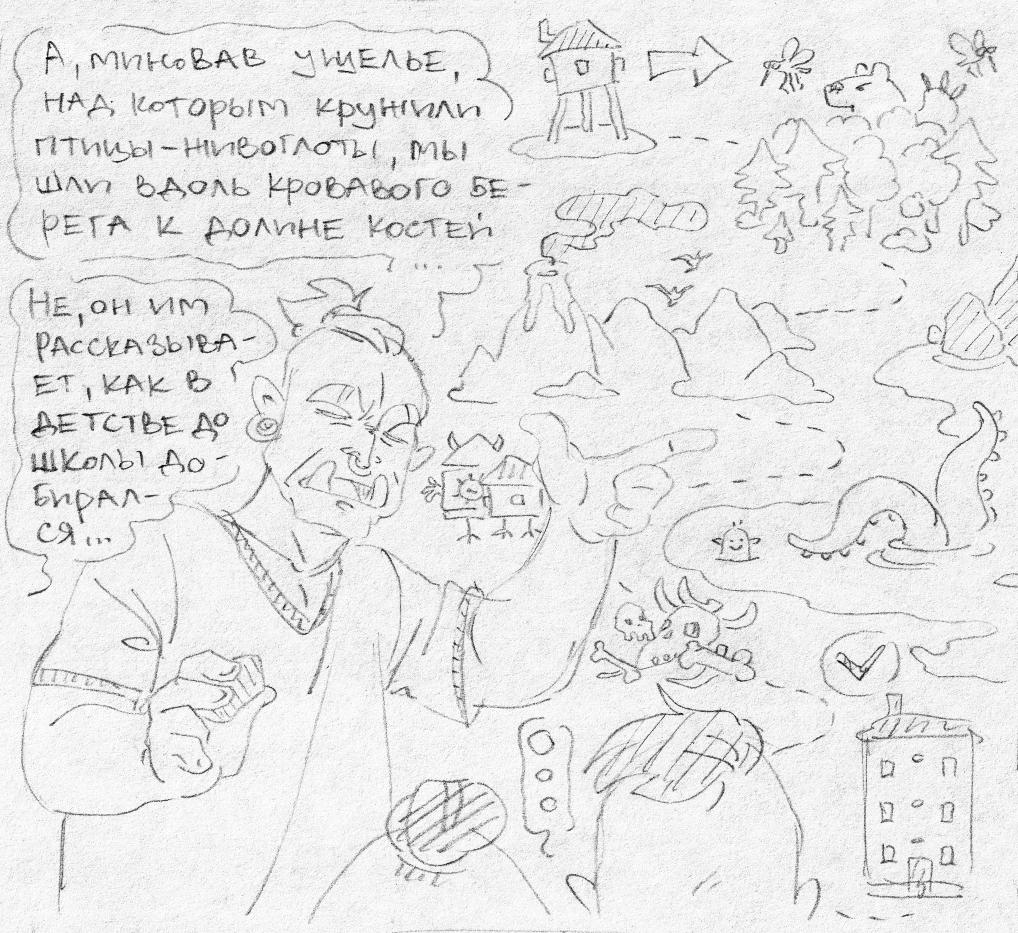 А, миновав ущелье,
над которым кружили
птицы-живоглоты, мы
шли вдоль кровавого бе-
рега к долине костей
...
Не, он им
рассказыва-
ет, как в
детстве до
школы до-
бирал-
ся...